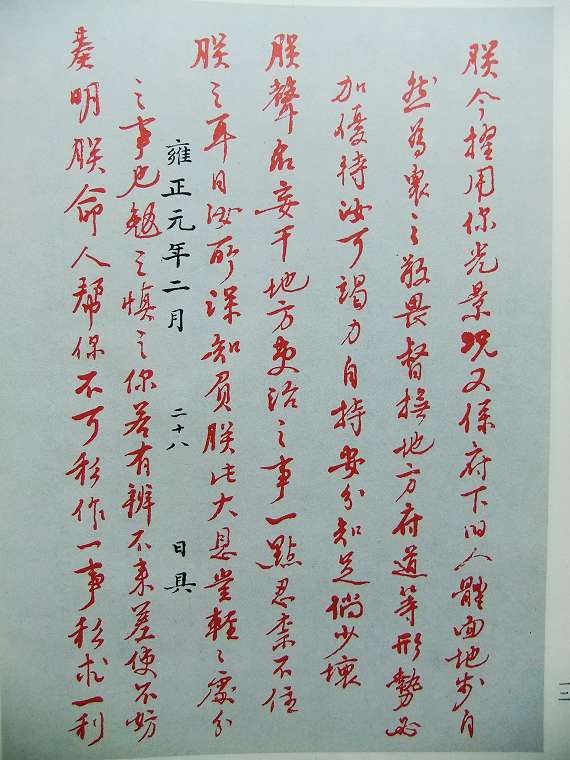 朕今擢用你光景況又係府下旧人體面地步自
然為衆之敬畏督撫地方府道等形勢必
加優待汝可竭力自持安分知足倘少壞
朕聲名妄干地方吏治之事一點忍柰不住
朕之耳目汝所深知負朕此大恩豈輕〻處分
雍正元年二月 二十八 日具
之事也勉之慎之你若有辦不来差使不妨
奏明朕命人幫你不可私作一事私求一利
一二